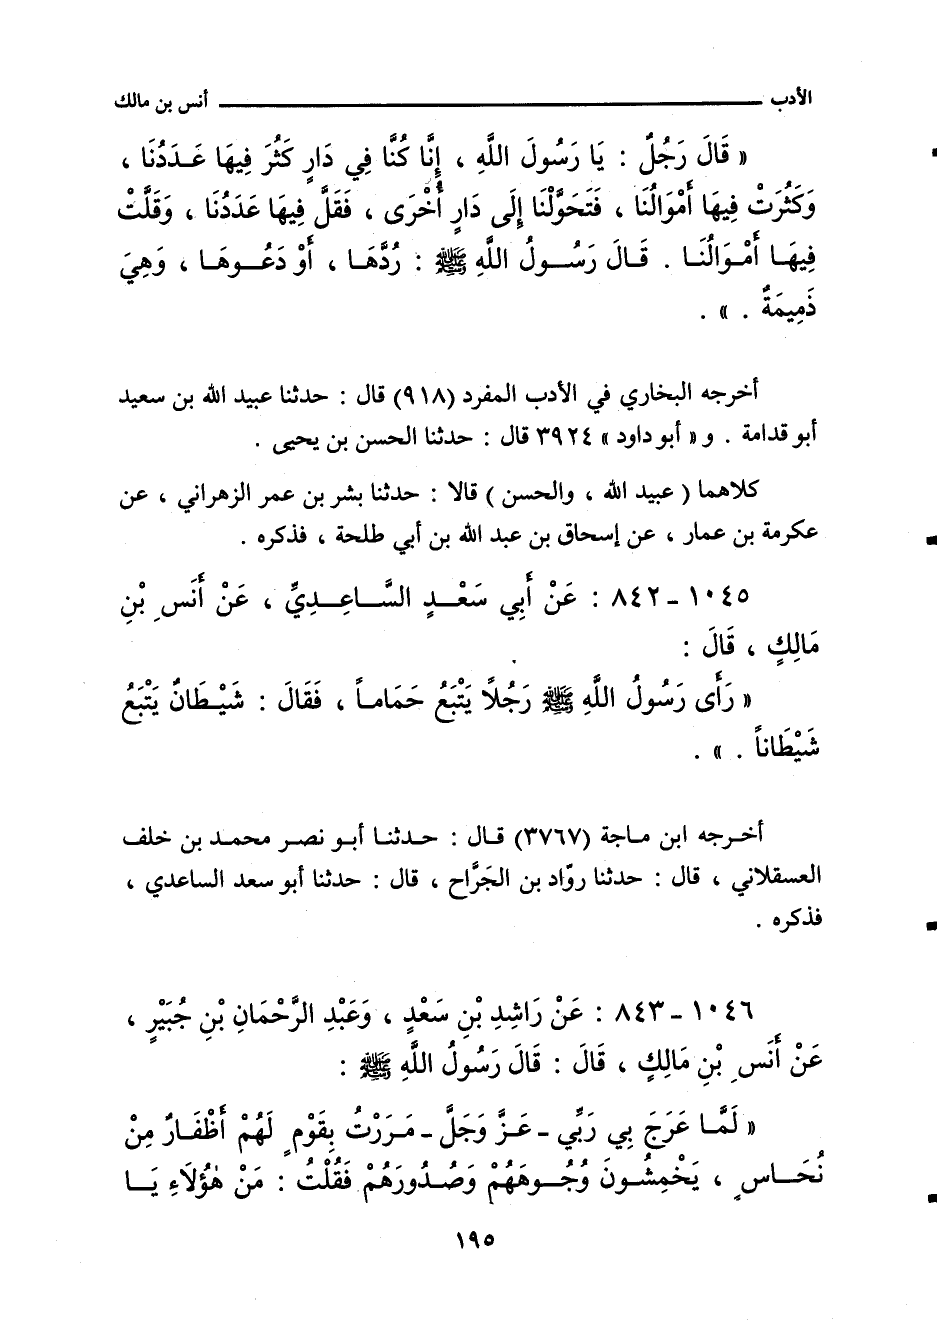 الأدب أنس بن مالك
« قَالَ رَجُلٌ : يَا رَسُولَ اللَّهِ ، إِنَّا كُنَّا فِي دَارٍ كَثُرَ فِيهَا عَدَدُنَا ،
وَكَثُرَتْ فِيهَا أَمْوَالُنَا ، فَتَحَوَّلْنَا إِلَى دَارٍ أُخْرَى ، فَقَلَّ فِيهَا عَدَدُنَا ، وَقَلَّتْ
فِيهَا أَمْوَالُنَا . قَالَ رَسُولُ اللَّهِ ﷺ : رُدَّهَا ، أَوْ دَعُوهَا ، وَهِيَ
ذَمِيمَةٌ . » .
أخرجه البخاري في الأدب المفرد (٩١٨) قال : حدثنا عبيد الله بن سعيد
أبو قدامة . و« أبو داود » ٣٩٢٤ قال : حدثنا الحسن بن يحيى .
كلاهما ( عبيد الله ، والحسن ) قالا : حدثنا بشر بن عمر الزهراني ، عن
عكرمة بن عمار ، عن إسحاق بن عبد الله بن أبي طلحة ، فذكره .
١٠٤٥ - ٨٤٢ : عَنْ أَبِي سَعْدٍ السَّاعِدِيِّ ، عَنْ أَنَسِ بْنِ
مَالِكٍ ، قَالَ :
« رَأَى رَسُولُ اللَّهِ ﷺ رَجُلاً يَتْبَعُ حَمَاماً ، فَقَالَ : شَيْطَانٌ يَتْبَعُ
شَيْطَاناً . » .
أخرجه ابن ماجة (٣٧٦٧) قال : حدثنا أبو نصر محمد بن خلف
العسقلاني ، قال : حدثنا روّاد بن الجَرَّاح ، قال : حدثنا أبو سعد الساعدي ،
فذكره .
١٠٤٦ - ٨٤٣ : عَنْ رَاشِدِ بْنِ سَعْدٍ ، وَعَبْدِ الرَّحْمَانِ بْنِ جُبَيْرٍ ،
عَنْ أَنَسِ بْنِ مَالِكٍ ، قَالَ : قَالَ رَسُولُ اللَّهِ ﷺ :
« لَمَّا عَرَجَ بِي رَبِّي - عَزَّ وَجَلَّ - مَرَرْتُ بِقَوْمٍ لَهُمْ أَظْفَارٌ مِنْ
نُحَاسٍ ، يَخْمِشُونَ وُجُوهَهُمْ وَصُدُورَهُمْ فَقُلْتُ : مَنْ هٰؤُلَاءِ يَا
١٩٥